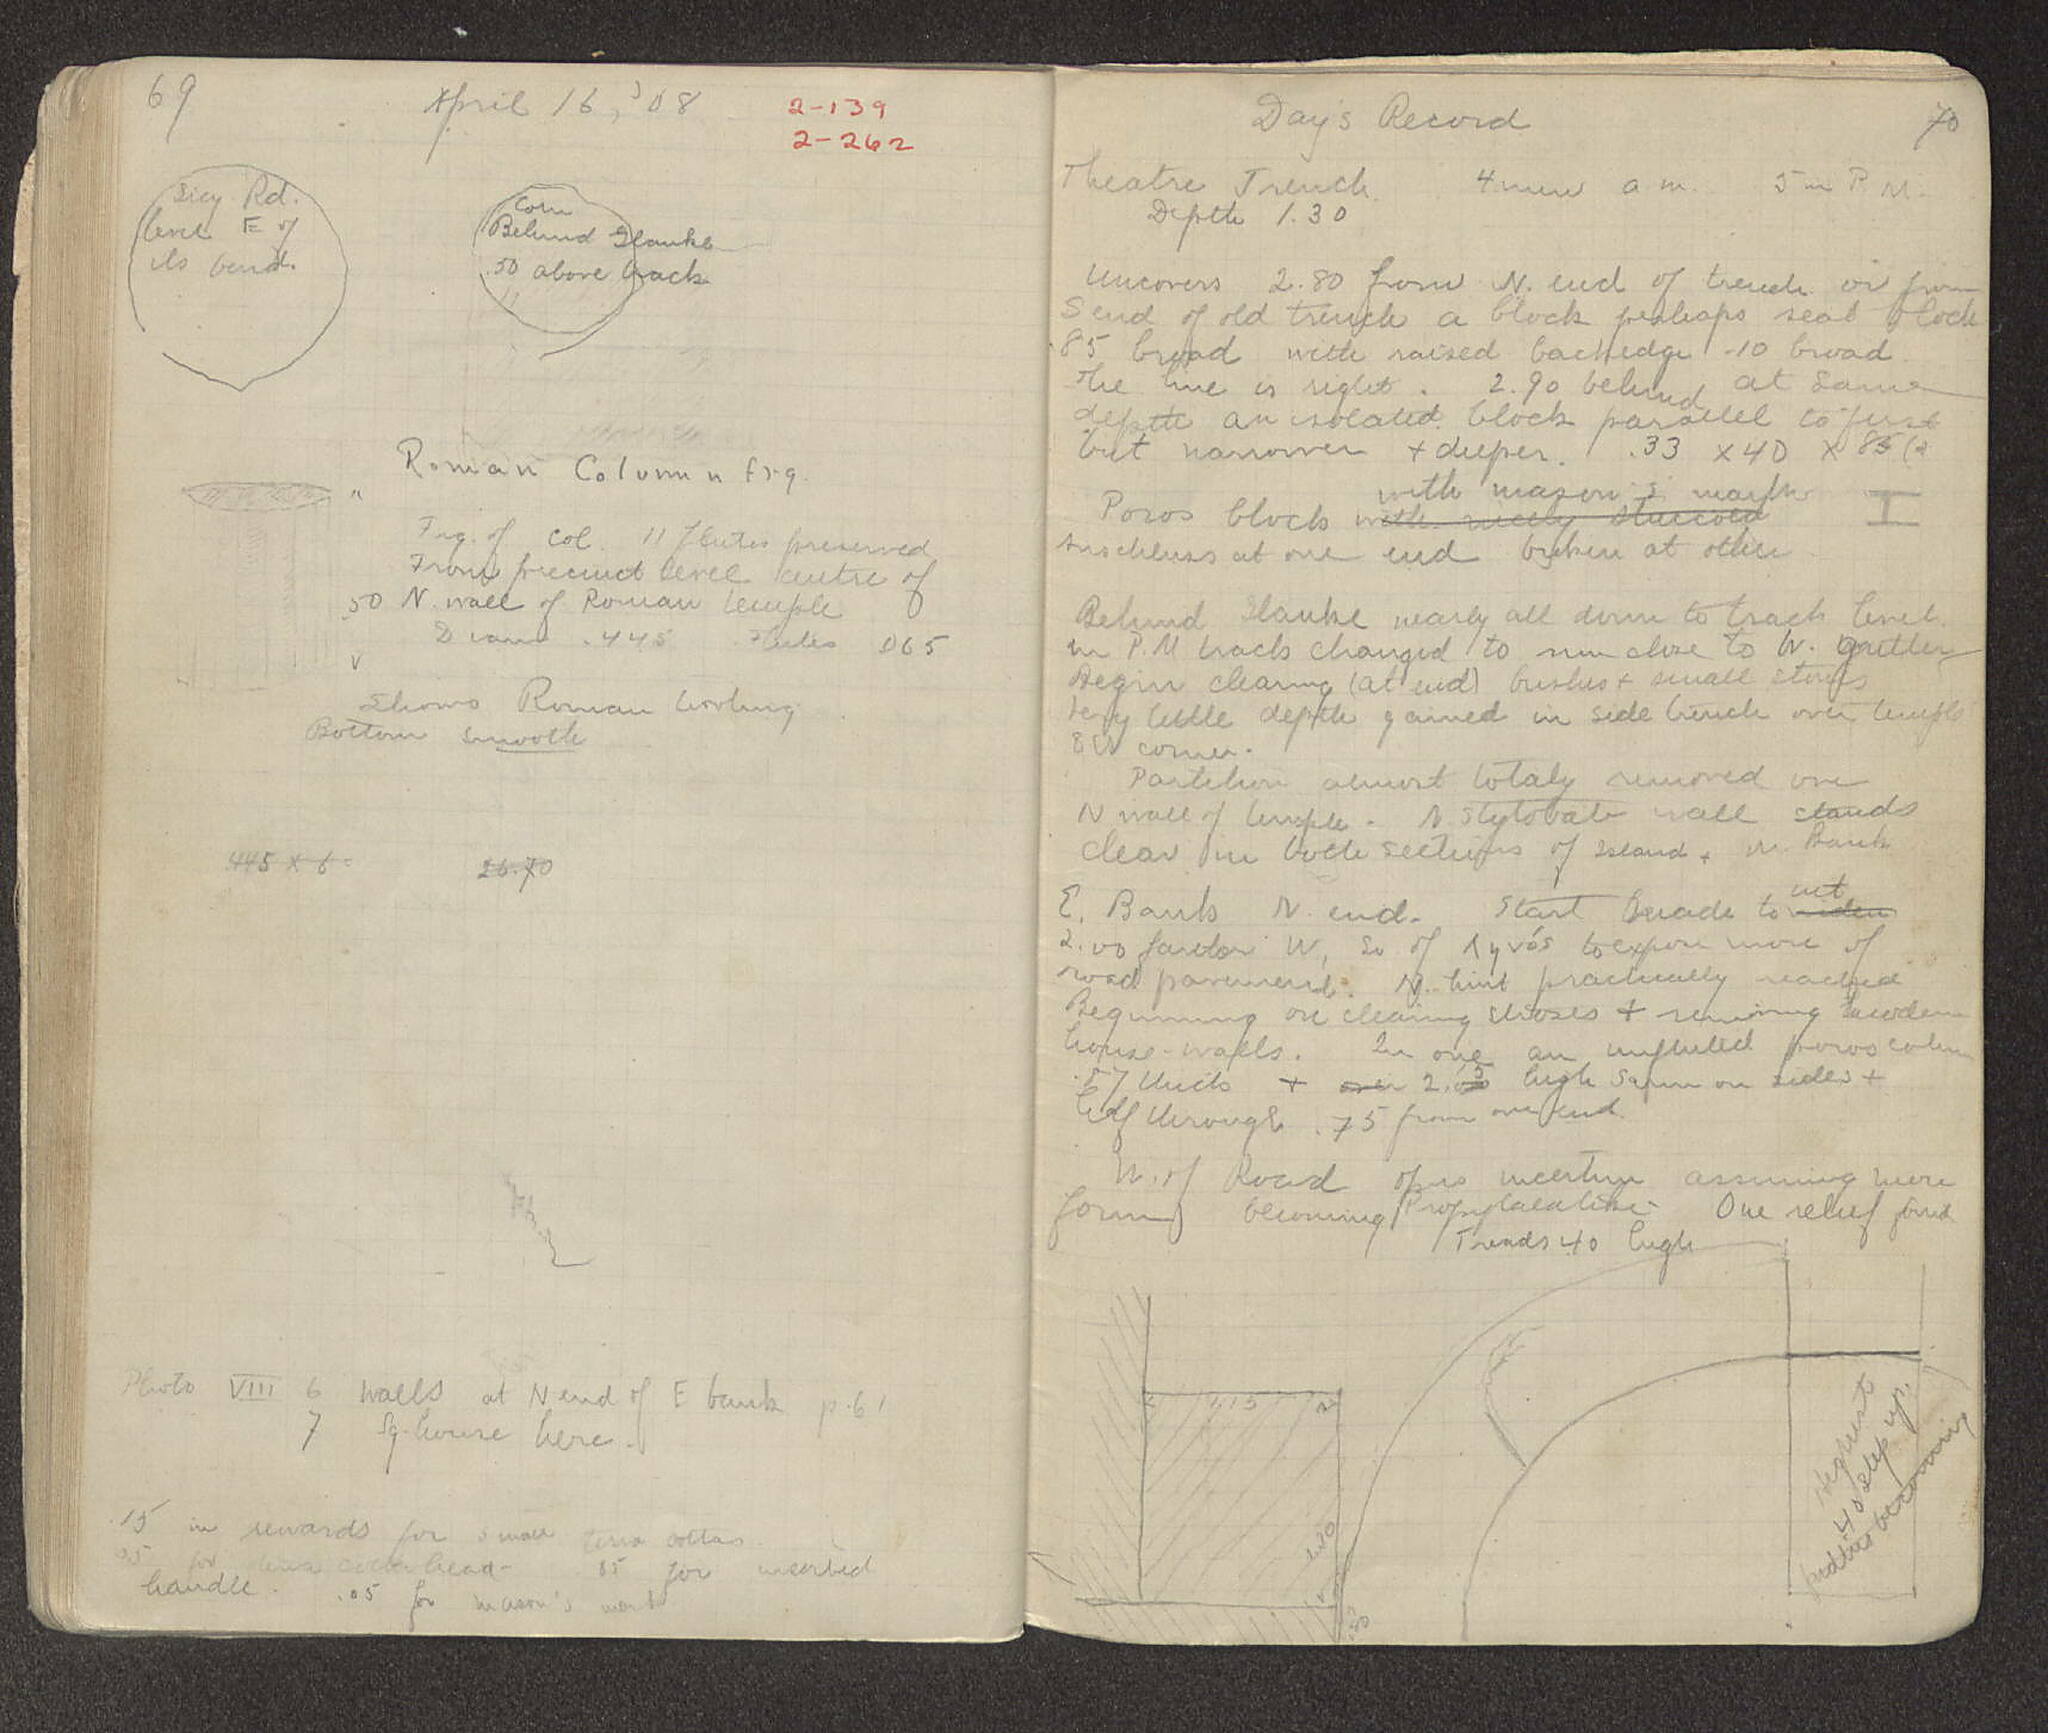 69
April 16, '08
2-139
2-262
Sicy Rd.
level E of
its bend.
Coin
Behind Glauke
.50 above track
Roman Column frg.
Frg. of col. 11 flutes preserved
From precinct level centre of
.50 N. wall of Roman temple
Diam .445 Flutes .065
Shows Roman tooling
Bottom smooth
.445 x 6 =
26.70
Photo VIII 6 walls at N end of E bank p. 61
7 Sq. house here.
.15 in rewards for small terra cottas
.05 for terra cotta head .05 for inserted
handle. .05 for mason's mark
Day's Record
70
Theatre Trench. 4 men a.m. 5 in P.M.
Depth 1.30
Uncovers 2.80 from N. end of trench or from
S end of old trench a block perhaps seat block
.85 broad with raised back edge .10 broad
The line is right. 2.90 behind at same
depth an isolated block parallel to first
but narrower + deeper. .33 x 40 x 85
with mason's mark
Poros block with nicely stuccoed
Anschluss at one end broken at other
Behind Glauke nearly all down to track level.
in P.M track changed to run close to W. gutter
Begin clearing (at end) bushes + small stones
Very little depth gained in side trench over temple
SW corner.
Partition almost totaly removed over
N wall of temple. N. Stylobate wall stands
clear in both sections of Island + N. Bank
E. Bank N. end. Start decade to widen
cut
2.00 farther W, So of Λιγνός to expose more of
road pavement. N. limit practically reached
Beginning on clearing stones + removing modern
house-walls. In one an unfluted poros column
.57 thick + over 2.05 high sawn on sides +
half through .75 from one end.
W. of Road opus incertum assuming more
form becoming Propylaealike. One relief found
Treads 40 high
1.15
1.20
.80
Highest
40 step up.